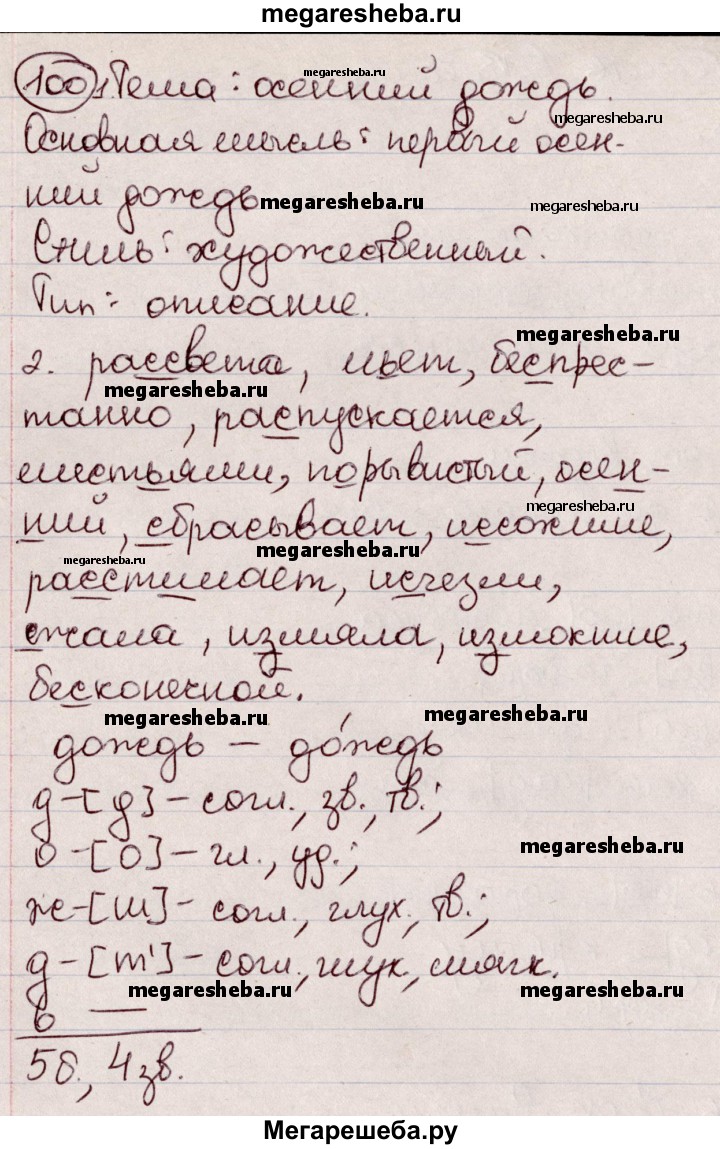 megaresheba.ru
100 1. Тема: осенний дождь.
megaresheba.ru
Основная мысль: первый осен-
megaresheba.ru
ний дождь
megaresheba.ru megaresheba.ru
Стиль: художественный.
Тип: описание.
megaresheba.ru
2. рассвета, льет, беспрес-
megaresheba.ru
танно, распускается,
листьями, порывистый, осен-
megaresheba.ru
ний, сбрасывает, иссохшие,
megaresheba.ru megaresheba.ru
расстилает, исчезли,
сжала, измяла, измокшие,
бесконечной.
megaresheba.ru megaresheba.ru
дождь – до́ждь
д-[д]-согл., зв., тв.;
о-[о]-гл., уд.;
megaresheba.ru
ж-[ш]-согл., глух., тв.;
д-[т']-согл., глух., мягк.
megaresheba.ru megaresheba.ru
ь —
5б., 4зв.
Мегарешеба.ру